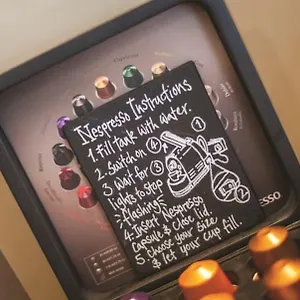 Nespresso Instructions
1. Fill tank with water.
2. Switch on ④
3 Wait for ③
lights to stop
flashing
4. Insert Nespresso
Capsule & Close lid
5. Choose your size
& let your cup fill.
1
2
3
4
ESSO